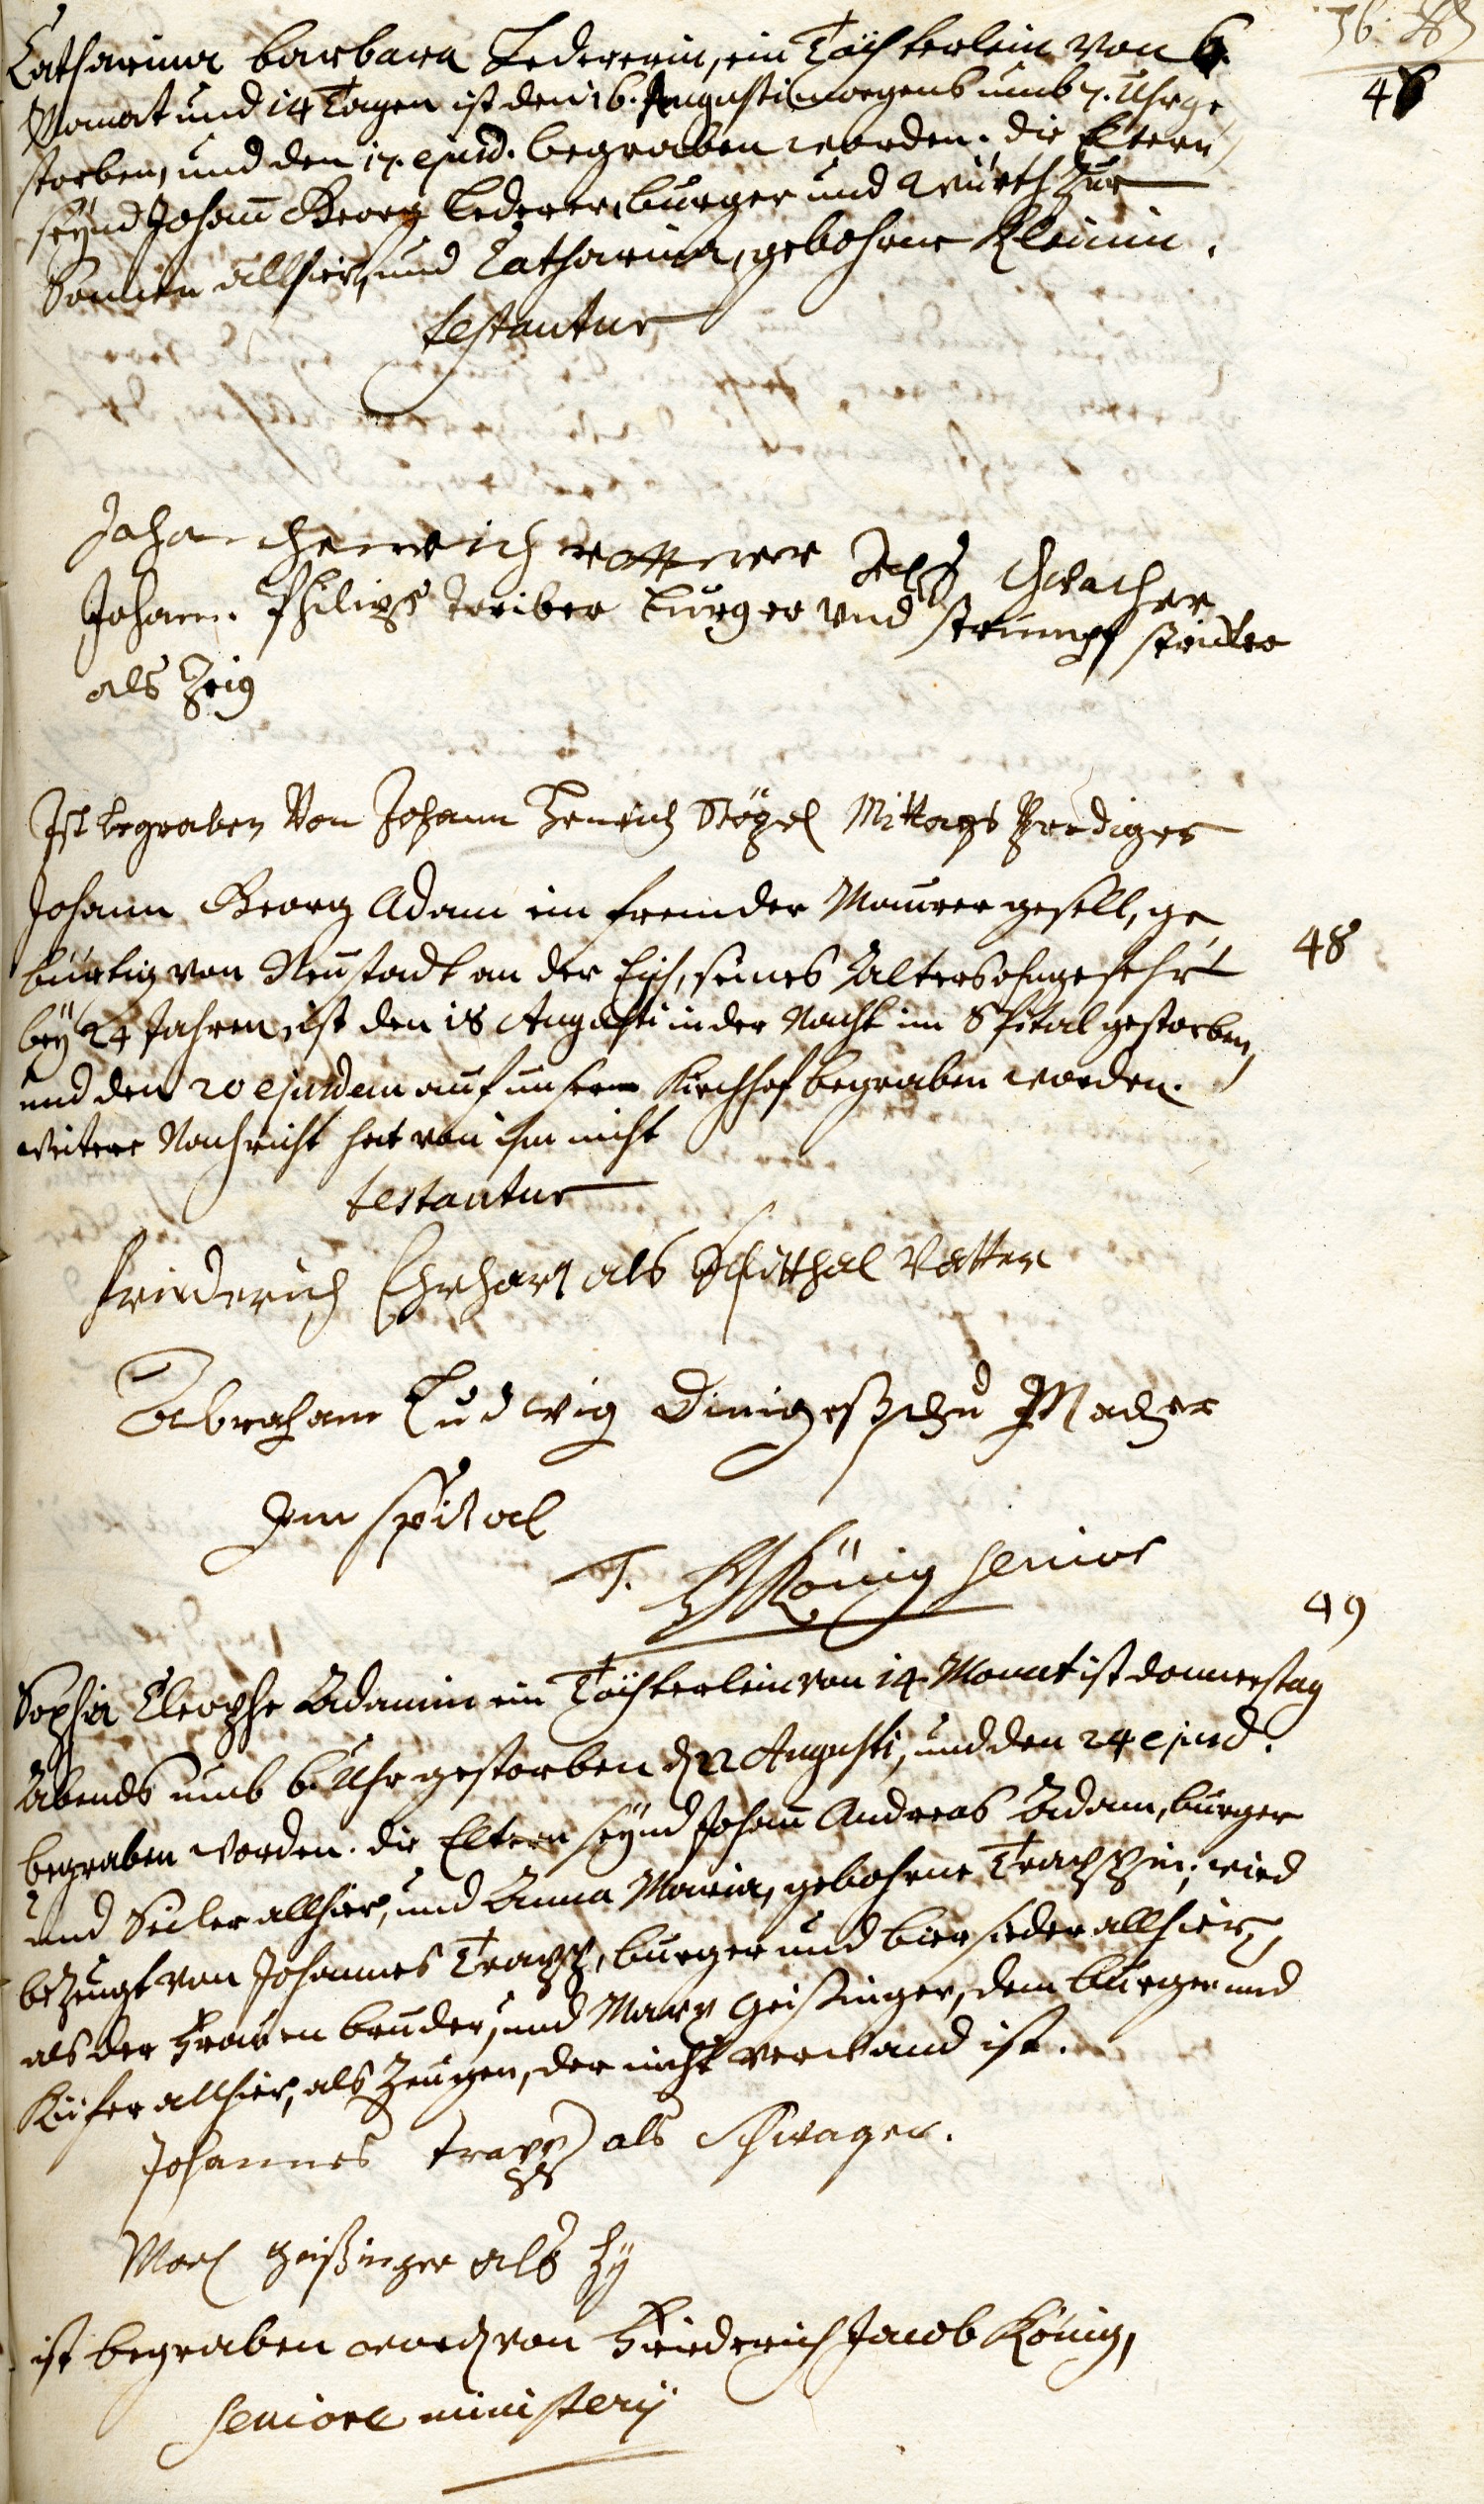 46
Catharina barbara Ledererin, ein Töchterlein von 6.
Monat und 14 Tagen ist den 16. Augusti morgens umb 7. Uhr ge
storben, und den 17. ejusd. begraben worden. die Eltern
seynd Johañ Georg Lederer, burger und Würth Zur
Sonnen allhier, und Catharina, gebohrne Kleinin.
testantur
Johan Henrich als Schwacher
Johann Philipß Treiber burger und strumpf stricker
als Zeig
Ist begraben Von Johann Henrich Stögel Mittags Prediger
Johann Georg Adam ein fremder Maurer gesell, ge
48
bürtig von Neustadt an der Eysch, seines Alters ohngefehr
bey 24 Jahren, ist den 18 Augusti in der Nacht im Spital gestorben,
und den 20 ejusdem auf unserm Kirchhof begraben worden.
weitere Nachricht hat von ihm nicht
testantur
Friederich Ehrhart als Spitthal Vatter
Abraham Ludwig Macher
Im spitval
T. König senior
49
Sophia Cleophe Adamin ein Töchterlein von 14. Monat ist donnerstag
Abends umb 6. Uhr gestorben d 22 Augusti, und den 24 ejusd.
begraben worden. die Eltern seynd Johañ Andreas Adam, burger
und Seiler allhier, und Anna Maria, gebohrne Trappin; wird
bezeugt von Johannes Trapp, burger und bier sieder allhier,
als der Frauen bruder, und Marx Geißinger, dem burger und
Küfer allhier, als Zeugen, der nicht verwand ist.
Johannes trapp als Schwager.
Marx geißinger als Zg
ist begraben word von Friederich Jacob König,
seniore ministerij